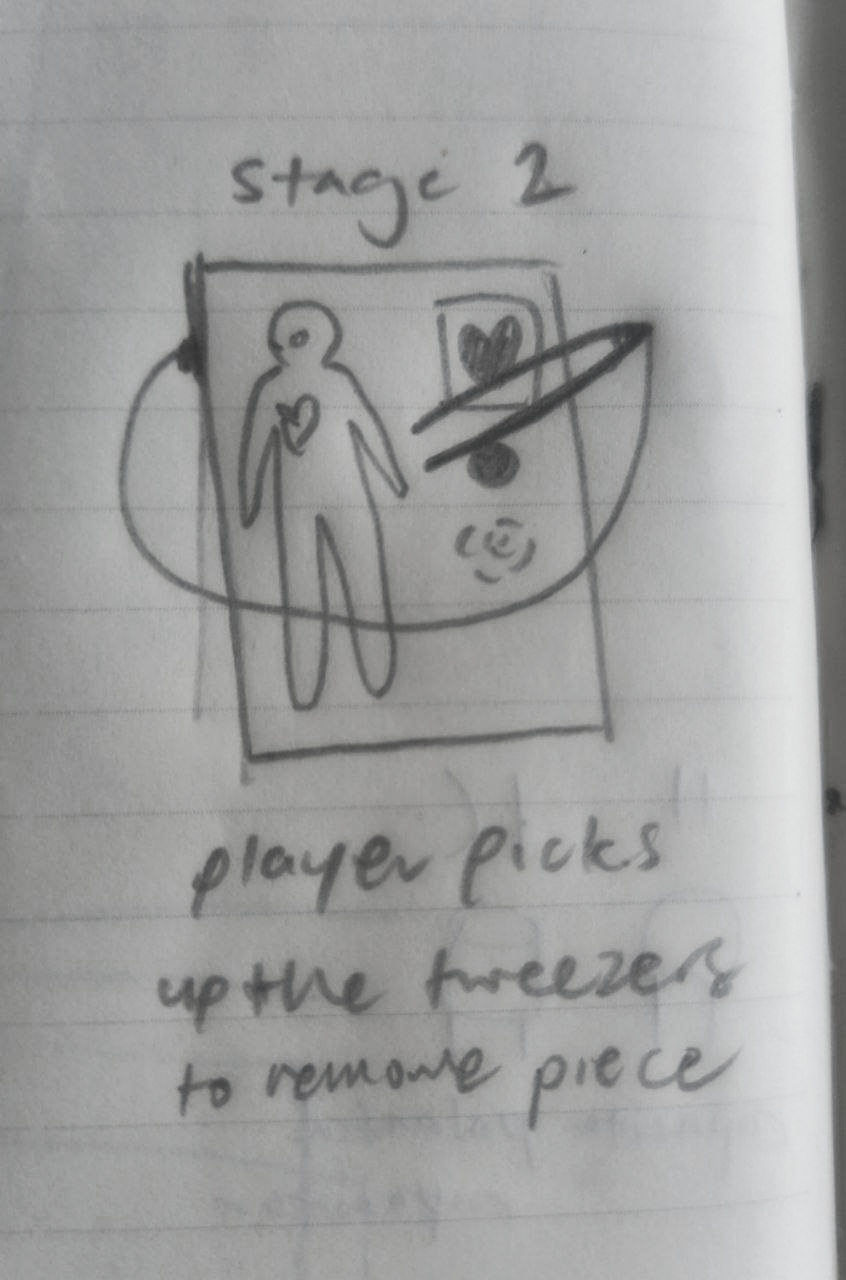 stage 2
player picks
up the tweezers
to remove piece